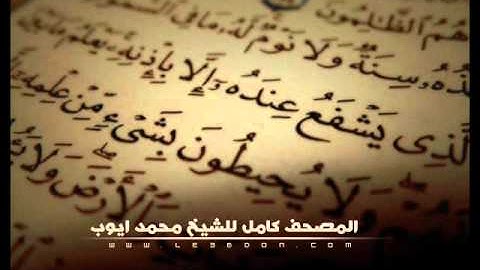 هُمُ الظَّٰلِمُونَ
خُذُهُۥ سِنَةٌ وَلَا نَوْمٌ لَّهُۥ مَا فِى السَّمَٰوَٰ
لَّذِى يَشْفَعُ عِندَهُۥٓ إِلَّا بِإِذْنِهِۦ يَعْلَمُ مَا بَيْنَ
وَلَا يُحِيطُونَ بِشَىْءٍ مِّنْ عِلْمِهِۦٓ إِلَّا
الْأَرْضَ وَلَا يَـُٔ
المصحف كامل للشيخ محمد ايوب
www.legboon.com